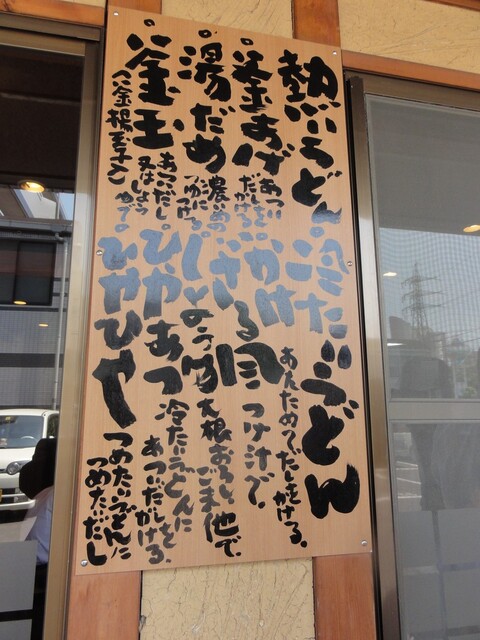 熱いうどん
釜あげ
あつい
だしを
かける。
湯だめ
濃いめの
つゆに
つける。
釜玉
あついだし。
又はしょう
ゆで。
(釜揚玉子入)
冷たいうどん
かけ
あたためてだしをかける。
ざる風
つけ汁で。
しょうゆ
大根おろし、
ごま他で。
ひやあつ
冷たいうどんに
あついだしを
かける。
ひやひや
つめたいうどんに
つめたいだし